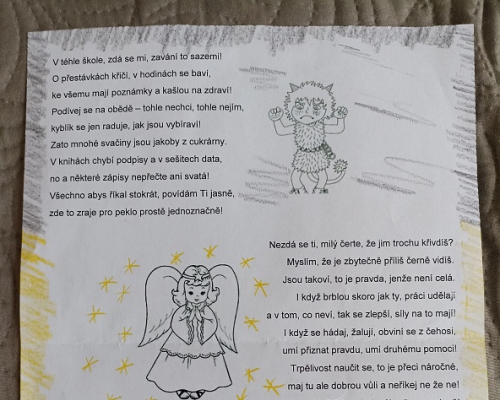 V téhle škole, zdá se mi, zavání to sazemi!
O přestávkách křičí, v hodinách se baví,
ke všemu mají poznámky a kašlou na zdraví!
Podívej se na obědě – tohle nechci, tohle nejím,
kyblík se jen raduje, jak jsou vybíraví!
Zato mnohé svačiny jsou jakoby z cukrárny.
V knihách chybí podpisy a v sešitech data,
no a některé zápisy nepřečte ani svatá!
Všechno abys říkal stokrát, povídám Ti jasně,
zde to zraje pro peklo prostě jednoznačně!
Nezdá se ti, milý čerte, že jim trochu křivdíš?
Myslím, že je zbytečně příliš černě vidíš.
Jsou takoví, to je pravda, jenže není celá.
I když brblou skoro jak ty, práci udělají
a v tom, co neví, tak se zlepší, síly na to mají!
I když se hádají, žalují, obviní se z čehosi,
umí přiznat pravdu, umí druhému pomoci!
Trpělivost naučit se, to je přeci náročné,
maj tu ale dobrou vůli a neříkej ne že ne!